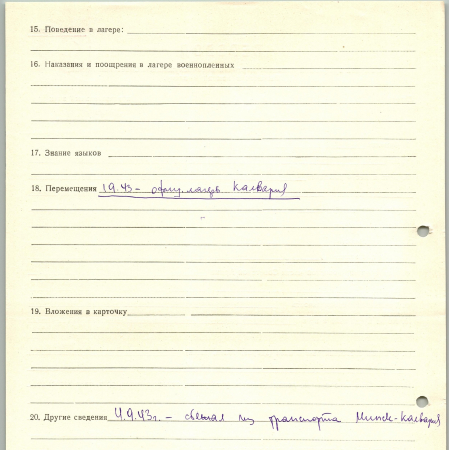 15. Поведение в лагере:
16. Наказания и поощрения в лагере военнопленных
17. Знание языков
18. Перемещения 1.9.43 - офиц. лагерь Кальвария
19. Вложения в карточку
20. Другие сведения 4.9.43г. - сбежал из транспорта Минск-Кальвария